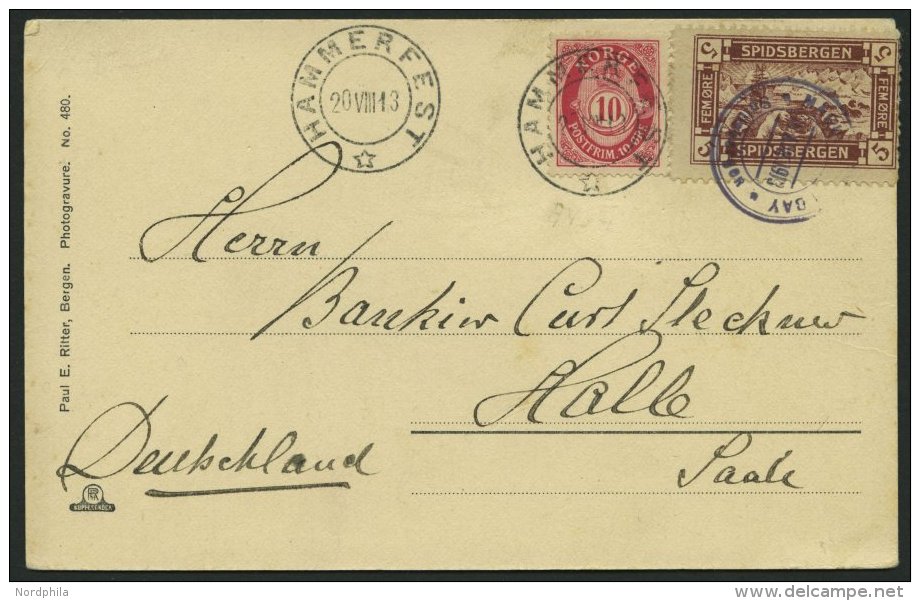 HAMMERFEST
20 VIII 13
HAMMERFEST
NORGE
10
POSTFRIM. 10 ØRE
5 SPIDSBERGEN 5
FEMØRE FEMØRE
5 SPIDSBERGEN 5
BAY
Herrn
Bankier Curt Steckner
Halle
Saale
Deutschland
Paul E. Ritter, Bergen. Photogravure. No. 480.
Nordphila
delcampe.net